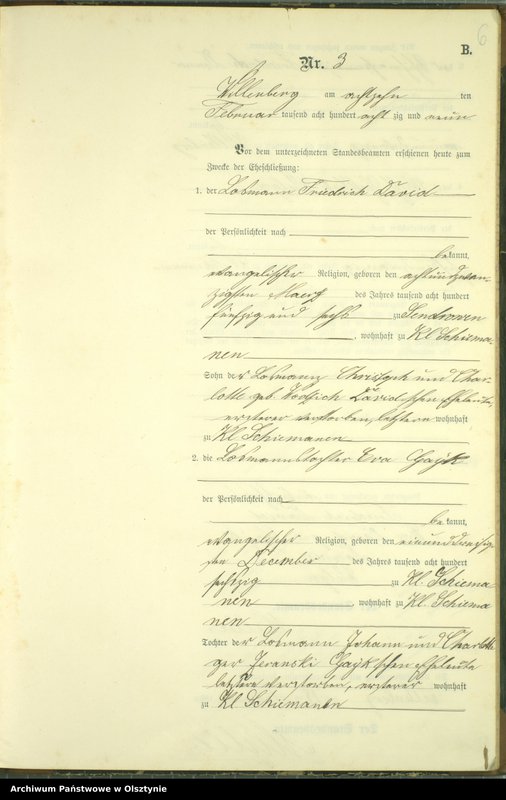 6
B.
Nr. 3
Willenberg am achtzehn ten
Februar tausend acht hundert acht zig und neun
Vor dem unterzeichneten Standesbeamten erschienen heute zum
Zwecke der Eheschließung:
1. der Losmann Friedrich David
der Persönlichkeit nach
bekannt,
evangelischer Religion, geboren den achtundzwan-
zigsten Maerz des Jahres tausend acht hundert
fünfzig und sechs zu Sendrowen
, wohnhaft zu Kl Schiema-
nen
Sohn der Losmann Christoph und Char-
lotte geb. David'schen Eheleute,
ersterer verstorben, letztere wohnhaft
zu Kl Schiemanen
2. die Losmannstochter Eva Gayk
der Persönlichkeit nach
bekannt,
evangelischer Religion, geboren den einunddreißig-
sten December des Jahres tausend acht hundert
sechzig zu Kl. Schiema
nen, wohnhaft zu Kl. Schiema
nen
Tochter der Losmann Johann und Charlotte
geb Jeranski Gayk'schen Eheleute
letztere verstorben, ersterer wohnhaft
zu Kl Schiemanen
Archiwum Państwowe w Olsztynie